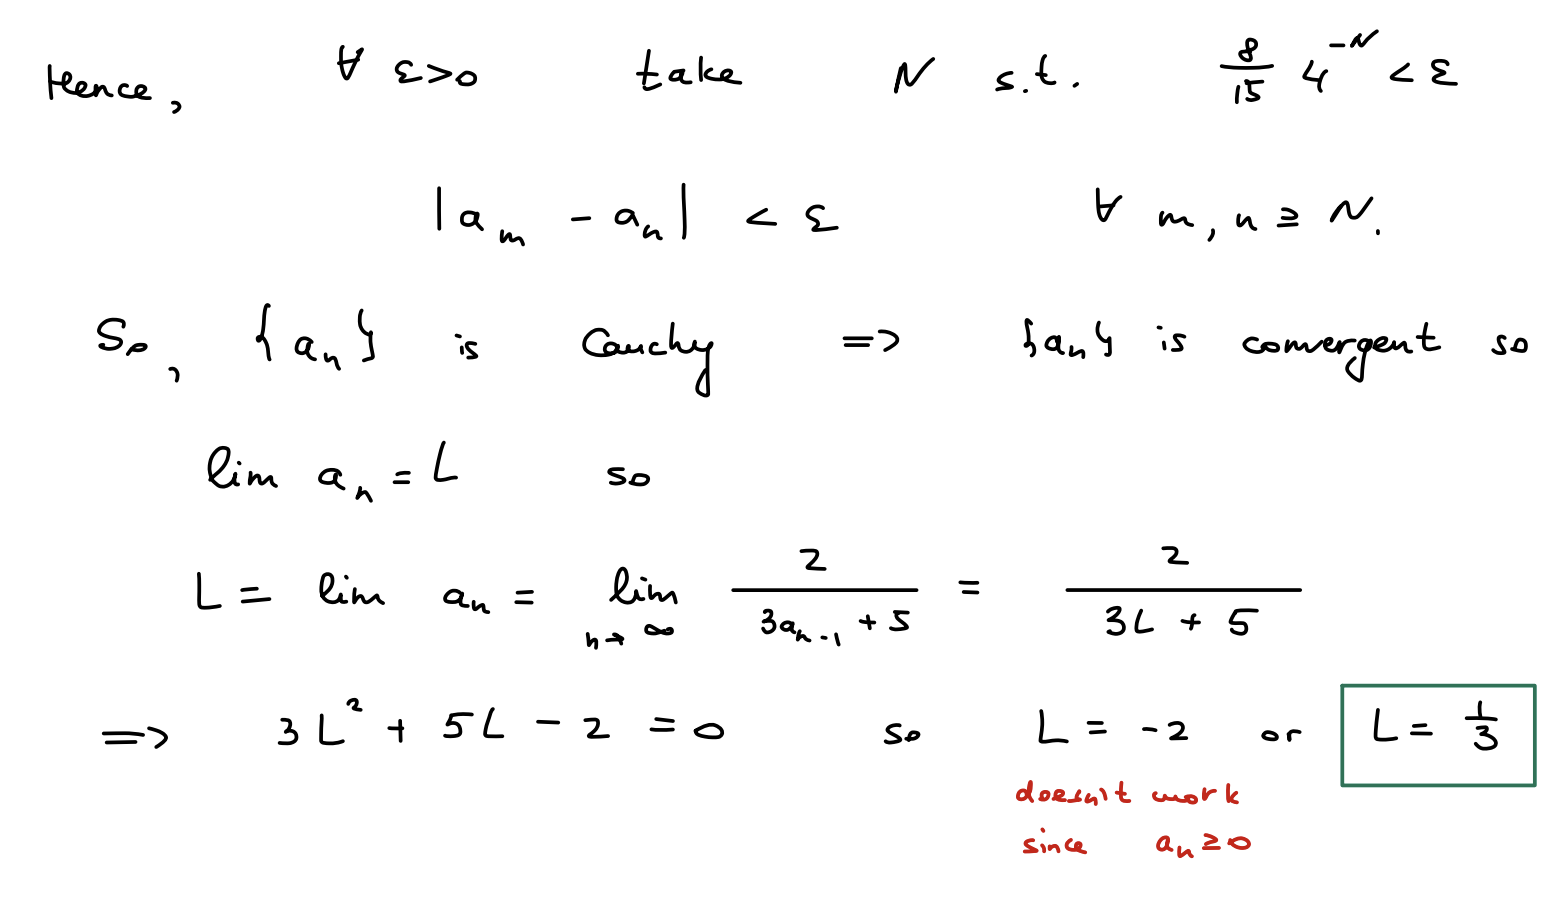 Hence, ∀ ε>0 take N s.t. 8/15 4^{-N} < ε
|a_m - a_n| < ε ∀ m, n ≥ N.
So, {a_n} is Cauchy => {a_n} is convergent so
lim a_n = L so
L = lim a_n = lim_{n→∞} 2/(3a_{n-1} + 5) = 2/(3L + 5)
=> 3L² + 5L - 2 = 0 so L = -2 or L = 1/3
doesn't work
since a_n ≥ 0